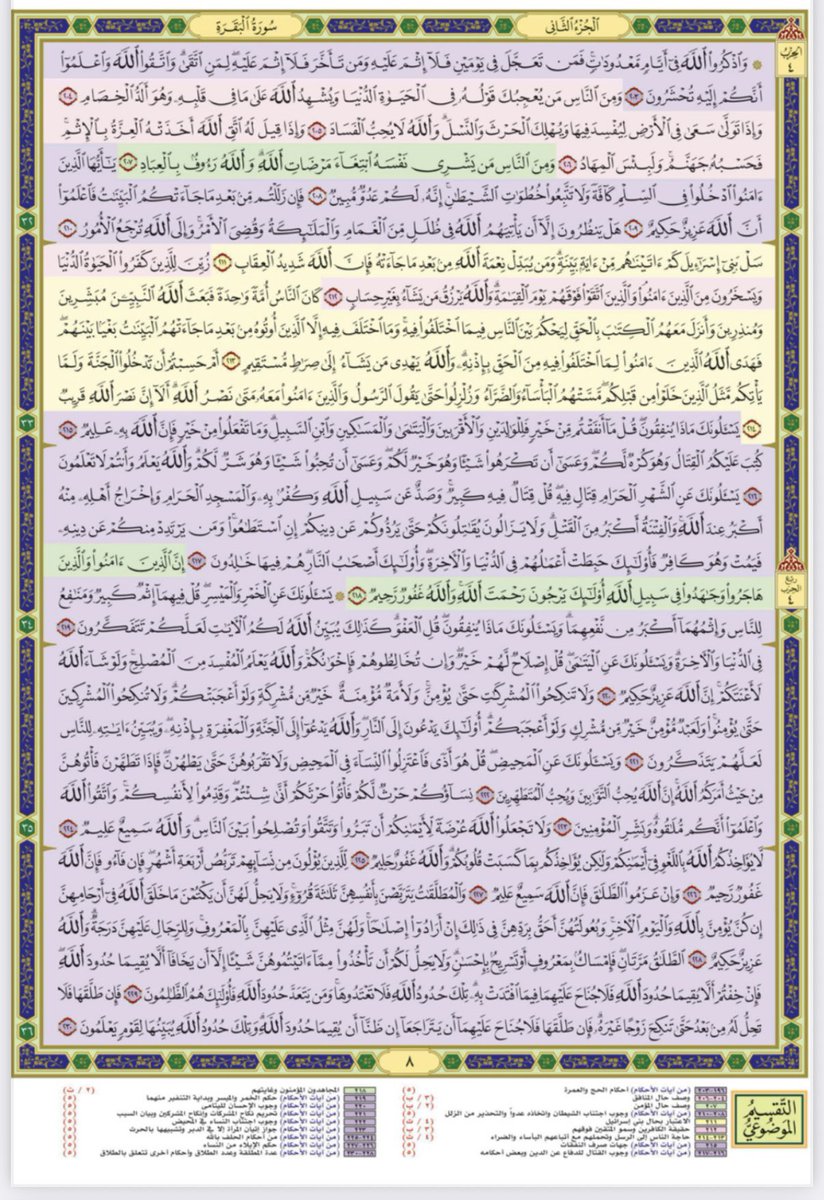 الجزء الثاني
سورة البقرة
الحزب ٤
۞ وَٱذْكُرُوا۟ ٱللَّهَ فِىٓ أَيَّامٍ مَّعْدُودَٰتٍ فَمَن تَعَجَّلَ فِى يَوْمَيْنِ فَلَآ إِثْمَ عَلَيْهِ وَمَن تَأَخَّرَ فَلَآ إِثْمَ عَلَيْهِ لِمَنِ ٱتَّقَىٰ وَٱتَّقُوا۟ ٱللَّهَ وَٱعْلَمُوٓا۟
أَنَّكُمْ إِلَيْهِ تُحْشَرُونَ ٢٠٣ وَمِنَ ٱلنَّاسِ مَن يُعْجِبُكَ قَوْلُهُۥ فِى ٱلْحَيَوٰةِ ٱلدُّنْيَا وَيُشْهِدُ ٱللَّهَ عَلَىٰ مَا فِى قَلْبِهِۦ وَهُوَ أَلَدُّ ٱلْخِصَامِ ٢٠٤
وَإِذَا تَوَلَّىٰ سَعَىٰ فِى ٱلْأَرْضِ لِيُفْسِدَ فِيهَا وَيُهْلِكَ ٱلْحَرْثَ وَٱلنَّسْلَ وَٱللَّهُ لَا يُحِبُّ ٱلْفَسَادَ ٢٠٥ وَإِذَا قِيلَ لَهُ ٱتَّقِ ٱللَّهَ أَخَذَتْهُ ٱلْعِزَّةُ بِٱلْإِثْمِ
فَحَسْبُهُۥ جَهَنَّمُ وَلَبِئْسَ ٱلْمِهَادُ ٢٠٦ وَمِنَ ٱلنَّاسِ مَن يَشْرِى نَفْسَهُ ٱبْتِغَآءَ مَرْضَاتِ ٱللَّهِ وَٱللَّهُ رَءُوفٌۢ بِٱلْعِبَادِ ٢٠٧ يَٰٓأَيُّهَا ٱلَّذِينَ
ءَامَنُوا۟ ٱدْخُلُوا۟ فِى ٱلسِّلْمِ كَآفَّةً وَلَا تَتَّبِعُوا۟ خُطُوَٰتِ ٱلشَّيْطَٰنِ إِنَّهُۥ لَكُمْ عَدُوٌّ مُّبِينٌ ٢٠٨ فَإِن زَلَلْتُم مِّنۢ بَعْدِ مَا جَآءَتْكُمُ ٱلْبَيِّنَٰتُ فَٱعْلَمُوٓا۟
أَنَّ ٱللَّهَ عَزِيزٌ حَكِيمٌ ٢٠٩ هَلْ يَنظُرُونَ إِلَّآ أَن يَأْتِيَهُمُ ٱللَّهُ فِى ظُلَلٍ مِّنَ ٱلْغَمَامِ وَٱلْمَلَٰٓئِكَةُ وَقُضِىَ ٱلْأَمْرُ وَإِلَى ٱللَّهِ تُرْجَعُ ٱلْأُمُورُ ٢١٠
٣٢
سَلْ بَنِىٓ إِسْرَٰٓءِيلَ كَمْ ءَاتَيْنَٰهُم مِّنْ ءَايَةٍۭ بَيِّنَةٍ وَمَن يُبَدِّلْ نِعْمَةَ ٱللَّهِ مِنۢ بَعْدِ مَا جَآءَتْهُ فَإِنَّ ٱللَّهَ شَدِيدُ ٱلْعِقَابِ ٢١١ زُيِّنَ لِلَّذِينَ كَفَرُوا۟ ٱلْحَيَوٰةُ ٱلدُّنْيَا
وَيَسْخَرُونَ مِنَ ٱلَّذِينَ ءَامَنُوا۟ وَٱلَّذِينَ ٱتَّقَوْا۟ فَوْقَهُمْ يَوْمَ ٱلْقِيَٰمَةِ وَٱللَّهُ يَرْزُقُ مَن يَشَآءُ بِغَيْرِ حِسَابٍ ٢١٢ كَانَ ٱلنَّاسُ أُمَّةً وَٰحِدَةً فَبَعَثَ ٱللَّهُ ٱلنَّبِيِّـۧنَ مُبَشِّرِينَ
وَمُنذِرِينَ وَأَنزَلَ مَعَهُمُ ٱلْكِتَٰبَ بِٱلْحَقِّ لِيَحْكُمَ بَيْنَ ٱلنَّاسِ فِيمَا ٱخْتَلَفُوا۟ فِيهِ وَمَا ٱخْتَلَفَ فِيهِ إِلَّا ٱلَّذِينَ أُوتُوهُ مِنۢ بَعْدِ مَا جَآءَتْهُمُ ٱلْبَيِّنَٰتُ بَغْيًۢا بَيْنَهُمْ
فَهَدَى ٱللَّهُ ٱلَّذِينَ ءَامَنُوا۟ لِمَا ٱخْتَلَفُوا۟ فِيهِ مِنَ ٱلْحَقِّ بِإِذْنِهِۦ وَٱللَّهُ يَهْدِى مَن يَشَآءُ إِلَىٰ صِرَٰطٍ مُّسْتَقِيمٍ ٢١٣ أَمْ حَسِبْتُمْ أَن تَدْخُلُوا۟ ٱلْجَنَّةَ وَلَمَّا
يَأْتِكُم مَّثَلُ ٱلَّذِينَ خَلَوْا۟ مِن قَبْلِكُم مَّسَّتْهُمُ ٱلْبَأْسَآءُ وَٱلضَّرَّآءُ وَزُلْزِلُوا۟ حَتَّىٰ يَقُولَ ٱلرَّسُولُ وَٱلَّذِينَ ءَامَنُوا۟ مَعَهُۥ مَتَىٰ نَصْرُ ٱللَّهِ أَلَآ إِنَّ نَصْرَ ٱللَّهِ قَرِيبٌ
٣٣
٢١٤ يَسْـَٔلُونَكَ مَاذَا يُنفِقُونَ قُلْ مَآ أَنفَقْتُم مِّنْ خَيْرٍ فَلِلْوَٰلِدَيْنِ وَٱلْأَقْرَبِينَ وَٱلْيَتَٰمَىٰ وَٱلْمَسَٰكِينِ وَٱبْنِ ٱلسَّبِيلِ وَمَا تَفْعَلُوا۟ مِنْ خَيْرٍ فَإِنَّ ٱللَّهَ بِهِۦ عَلِيمٌ ٢١٥
كُتِبَ عَلَيْكُمُ ٱلْقِتَالُ وَهُوَ كُرْهٌ لَّكُمْ وَعَسَىٰٓ أَن تَكْرَهُوا۟ شَيْـًٔا وَهُوَ خَيْرٌ لَّكُمْ وَعَسَىٰٓ أَن تُحِبُّوا۟ شَيْـًٔا وَهُوَ شَرٌّ لَّكُمْ وَٱللَّهُ يَعْلَمُ وَأَنتُمْ لَا تَعْلَمُونَ
٢١٦ يَسْـَٔلُونَكَ عَنِ ٱلشَّهْرِ ٱلْحَرَامِ قِتَالٍ فِيهِ قُلْ قِتَالٌ فِيهِ كَبِيرٌ وَصَدٌّ عَن سَبِيلِ ٱللَّهِ وَكُفْرٌۢ بِهِۦ وَٱلْمَسْجِدِ ٱلْحَرَامِ وَإِخْرَاجُ أَهْلِهِۦ مِنْهُ
أَكْبَرُ عِندَ ٱللَّهِ وَٱلْفِتْنَةُ أَكْبَرُ مِنَ ٱلْقَتْلِ وَلَا يَزَالُونَ يُقَٰتِلُونَكُمْ حَتَّىٰ يَرُدُّوكُمْ عَن دِينِكُمْ إِنِ ٱسْتَطَٰعُوا۟ وَمَن يَرْتَدِدْ مِنكُمْ عَن دِينِهِۦ
فَيَمُتْ وَهُوَ كَافِرٌ فَأُو۟لَٰٓئِكَ حَبِطَتْ أَعْمَٰلُهُمْ فِى ٱلدُّنْيَا وَٱلْءَاخِرَةِ وَأُو۟لَٰٓئِكَ أَصْحَٰبُ ٱلنَّارِ هُمْ فِيهَا خَٰلِدُونَ ٢١٧ إِنَّ ٱلَّذِينَ ءَامَنُوا۟ وَٱلَّذِينَ
ربع الحزب ٤
هَاجَرُوا۟ وَجَٰهَدُوا۟ فِى سَبِيلِ ٱللَّهِ أُو۟لَٰٓئِكَ يَرْجُونَ رَحْمَتَ ٱللَّهِ وَٱللَّهُ غَفُورٌ رَّحِيمٌ ٢١٨ ۞ يَسْـَٔلُونَكَ عَنِ ٱلْخَمْرِ وَٱلْمَيْسِرِ قُلْ فِيهِمَآ إِثْمٌ كَبِيرٌ وَمَنَٰفِعُ
٣٤
لِلنَّاسِ وَإِثْمُهُمَآ أَكْبَرُ مِن نَّفْعِهِمَا وَيَسْـَٔلُونَكَ مَاذَا يُنفِقُونَ قُلِ ٱلْعَفْوَ كَذَٰلِكَ يُبَيِّنُ ٱللَّهُ لَكُمُ ٱلْءَايَٰتِ لَعَلَّكُمْ تَتَفَكَّرُونَ ٢١٩
فِى ٱلدُّنْيَا وَٱلْءَاخِرَةِ وَيَسْـَٔلُونَكَ عَنِ ٱلْيَتَٰمَىٰ قُلْ إِصْلَاحٌ لَّهُمْ خَيْرٌ وَإِن تُخَالِطُوهُمْ فَإِخْوَٰنُكُمْ وَٱللَّهُ يَعْلَمُ ٱلْمُفْسِدَ مِنَ ٱلْمُصْلِحِ وَلَوْ شَآءَ ٱللَّهُ
لَأَعْنَتَكُمْ إِنَّ ٱللَّهَ عَزِيزٌ حَكِيمٌ ٢٢٠ وَلَا تَنكِحُوا۟ ٱلْمُشْرِكَٰتِ حَتَّىٰ يُؤْمِنَّ وَلَأَمَةٌ مُّؤْمِنَةٌ خَيْرٌ مِّن مُّشْرِكَةٍ وَلَوْ أَعْجَبَتْكُمْ وَلَا تُنكِحُوا۟ ٱلْمُشْرِكِينَ
حَتَّىٰ يُؤْمِنُوا۟ وَلَعَبْدٌ مُّؤْمِنٌ خَيْرٌ مِّن مُّشْرِكٍ وَلَوْ أَعْجَبَكُمْ أُو۟لَٰٓئِكَ يَدْعُونَ إِلَى ٱلنَّارِ وَٱللَّهُ يَدْعُوٓا۟ إِلَى ٱلْجَنَّةِ وَٱلْمَغْفِرَةِ بِإِذْنِهِۦ وَيُبَيِّنُ ءَايَٰتِهِۦ لِلنَّاسِ
لَعَلَّهُمْ يَتَذَكَّرُونَ ٢٢١ وَيَسْـَٔلُونَكَ عَنِ ٱلْمَحِيضِ قُلْ هُوَ أَذًى فَٱعْتَزِلُوا۟ ٱلنِّسَآءَ فِى ٱلْمَحِيضِ وَلَا تَقْرَبُوهُنَّ حَتَّىٰ يَطْهُرْنَ فَإِذَا تَطَهَّرْنَ فَأْتُوهُنَّ
مِنْ حَيْثُ أَمَرَكُمُ ٱللَّهُ إِنَّ ٱللَّهَ يُحِبُّ ٱلتَّوَّٰبِينَ وَيُحِبُّ ٱلْمُتَطَهِّرِينَ ٢٢٢ نِسَآؤُكُمْ حَرْثٌ لَّكُمْ فَأْتُوا۟ حَرْثَكُمْ أَنَّىٰ شِئْتُمْ وَقَدِّمُوا۟ لِأَنفُسِكُمْ وَٱتَّقُوا۟ ٱللَّهَ
٣٥
وَٱعْلَمُوٓا۟ أَنَّكُم مُّلَٰقُوهُ وَبَشِّرِ ٱلْمُؤْمِنِينَ ٢٢٣ وَلَا تَجْعَلُوا۟ ٱللَّهَ عُرْضَةً لِّأَيْمَٰنِكُمْ أَن تَبَرُّوا۟ وَتَتَّقُوا۟ وَتُصْلِحُوا۟ بَيْنَ ٱلنَّاسِ وَٱللَّهُ سَمِيعٌ عَلِيمٌ ٢٢٤
لَّا يُؤَاخِذُكُمُ ٱللَّهُ بِٱللَّغْوِ فِىٓ أَيْمَٰنِكُمْ وَلَٰكِن يُؤَاخِذُكُم بِمَا كَسَبَتْ قُلُوبُكُمْ وَٱللَّهُ غَفُورٌ حَلِيمٌ ٢٢٥ لِّلَّذِينَ يُؤْلُونَ مِن نِّسَآئِهِمْ تَرَبُّصُ أَرْبَعَةِ أَشْهُرٍ فَإِن فَآءُو فَإِنَّ ٱللَّهَ
غَفُورٌ رَّحِيمٌ ٢٢٦ وَإِنْ عَزَمُوا۟ ٱلطَّلَٰقَ فَإِنَّ ٱللَّهَ سَمِيعٌ عَلِيمٌ ٢٢٧ وَٱلْمُطَلَّقَٰتُ يَتَرَبَّصْنَ بِأَنفُسِهِنَّ ثَلَٰثَةَ قُرُوٓءٍ وَلَا يَحِلُّ لَهُنَّ أَن يَكْتُمْنَ مَا خَلَقَ ٱللَّهُ فِىٓ أَرْحَامِهِنَّ
إِن كُنَّ يُؤْمِنَّ بِٱللَّهِ وَٱلْيَوْمِ ٱلْءَاخِرِ وَبُعُولَتُهُنَّ أَحَقُّ بِرَدِّهِنَّ فِى ذَٰلِكَ إِنْ أَرَادُوٓا۟ إِصْلَٰحًا وَلَهُنَّ مِثْلُ ٱلَّذِى عَلَيْهِنَّ بِٱلْمَعْرُوفِ وَلِلرِّجَالِ عَلَيْهِنَّ دَرَجَةٌ وَٱللَّهُ
عَزِيزٌ حَكِيمٌ ٢٢٨ ٱلطَّلَٰقُ مَرَّتَانِ فَإِمْسَاكٌۢ بِمَعْرُوفٍ أَوْ تَسْرِيحٌۢ بِإِحْسَٰنٍ وَلَا يَحِلُّ لَكُمْ أَن تَأْخُذُوا۟ مِمَّآ ءَاتَيْتُمُوهُنَّ شَيْـًٔا إِلَّآ أَن يَخَافَآ أَلَّا يُقِيمَا حُدُودَ ٱللَّهِ
فَإِنْ خِفْتُمْ أَلَّا يُقِيمَا حُدُودَ ٱللَّهِ فَلَا جُنَاحَ عَلَيْهِمَا فِيمَا ٱفْتَدَتْ بِهِۦ تِلْكَ حُدُودُ ٱللَّهِ فَلَا تَعْتَدُوهَا وَمَن يَتَعَدَّ حُدُودَ ٱللَّهِ فَأُو۟لَٰٓئِكَ هُمُ ٱلظَّٰلِمُونَ ٢٢٩ فَإِن طَلَّقَهَا فَلَا
٣٦
تَحِلُّ لَهُۥ مِنۢ بَعْدُ حَتَّىٰ تَنكِحَ زَوْجًا غَيْرَهُۥ فَإِن طَلَّقَهَا فَلَا جُنَاحَ عَلَيْهِمَآ أَن يَتَرَاجَعَآ إِن ظَنَّآ أَن يُقِيمَا حُدُودَ ٱللَّهِ وَتِلْكَ حُدُودُ ٱللَّهِ يُبَيِّنُهَا لِقَوْمٍ يَعْلَمُونَ ٢٣٠
٨
التقسيم الموضوعي
(من آيات الأحكام) أحكام الحج والعمرة (٥)
٢٠٤-٢٠٦ وصف حال المنافق (٣ / ب)
٢٠٧ وصف حال المؤمن (٢ / ب)
(من آيات الأحكام) وجوب اجتناب الشيطان واتخاذه عدواً والتحذير من الزلل (٥)
٢١١ الاعتبار بحال بني إسرائيل (٤ / ث)
٢١٢ حقيقة الكافرين وسمو المتقين فوقهم (٣ / ب)
٢١٣-٢١٤ حاجة الناس إلى الرسل وتحملهم مع أتباعهم البأساء والضراء (٤ / ث)
٢١٥ (من آيات الأحكام) جهات صرف النفقات (٥)
٢١٦-٢١٧ (من آيات الأحكام) وجوب القتال للدفاع عن الدين وبعض أحكامه (٥)
٢١٨ المجاهدون المؤمنون وغايتهم (٢ / ث)
٢١٩ (من آيات الأحكام) حكم الخمر والميسر وبداية التنفير منهما (٥)
٢٢٠ (من آيات الأحكام) وجوب الإحسان لليتامى (٥)
٢٢١ (من آيات الأحكام) تحريم نكاح المشركات وإنكاح المشركين وبيان السبب (٥)
٢٢٢ (من آيات الأحكام) وجوب اجتناب النساء في المحيض (٥)
٢٢٣ (من آيات الأحكام) جواز إتيان المرأة إلا في الدبر وتشبيهها بالحرث (٥)
٢٢٤-٢٢٥ (من آيات الأحكام) من أحكام الحلف بالله (٥)
٢٢٦-٢٢٧ (من آيات الأحكام) حكم الإيلاء من النساء (٥)
٢٢٨-٢٣٠ (من آيات الأحكام) عدة المطلقة وعدد الطلاق وأحكام أخرى تتعلق بالطلاق (٥)